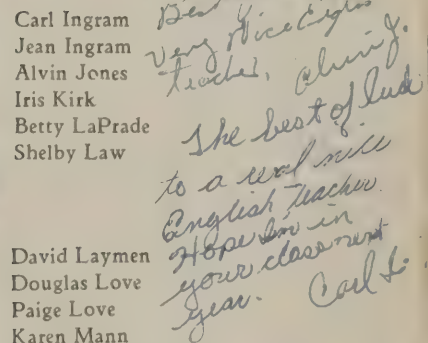 Carl Ingram
Jean Ingram
Alvin Jones
Iris Kirk
Betty LaPrade
Shelby Law
David Laymen
Douglas Love
Paige Love
Karen Mann
Best
Very Nice English
teacher, Alvin J.
The best of luck
to a real nice
English teacher.
Hope I'm in
your class next
year. Carl I.